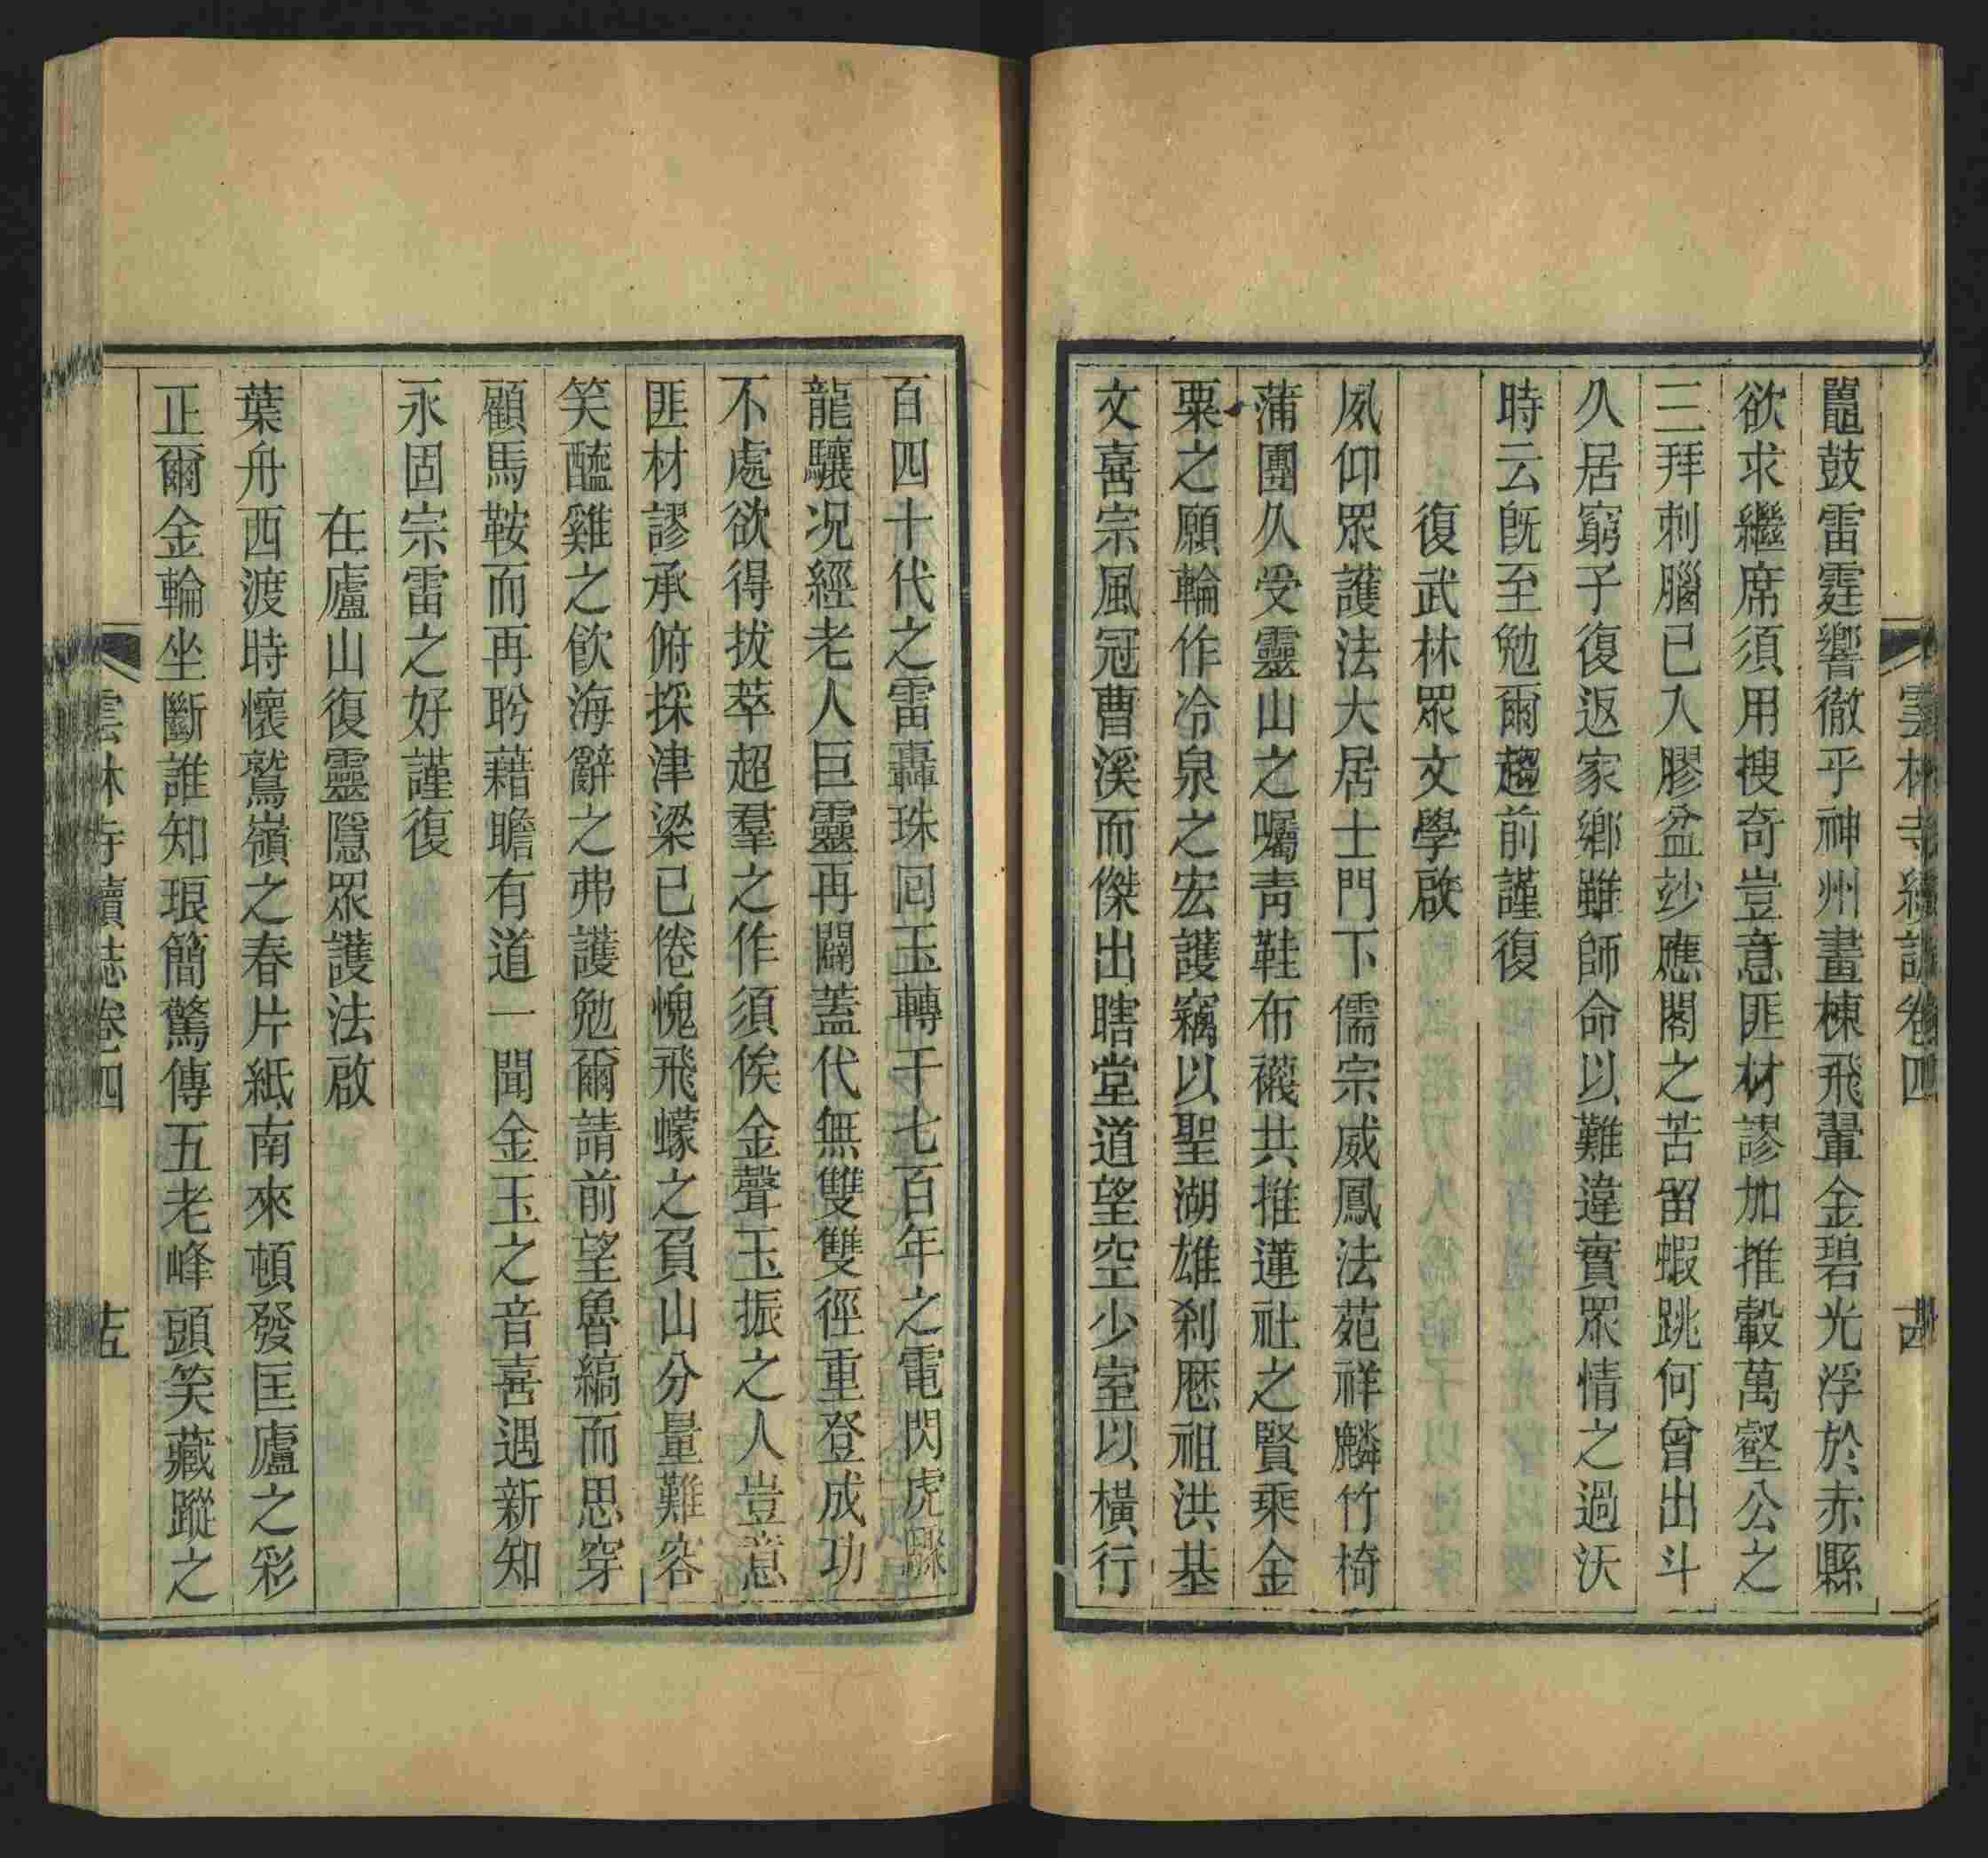 雲林寺續誌卷四
十四
鼉鼓雷霆響徹乎神州畫棟飛翬金碧光浮於赤縣
欲求繼席須用搜奇豈意匪材謬加推轂萬壑公之
三拜刺腦已入膠盆竗應閣之苦留蝦跳何曾出斗
久居窮子復返家鄉雖師命以難違實眾情之過沃
時云旣至勉爾趨前謹復
復武林眾文學啟
夙仰眾護法大居士門下儒宗威鳳法苑祥麟竹椅
蒲團久受靈山之囑靑鞋布襪共推蓮社之賢乘金
粟之願輪作冷泉之宏護竊以聖湖雄刹厯祖洪基
文喜宗風冠曹溪而傑出瞎堂道望空少室以橫行
百四十代之雷轟珠回玉轉千七百年之電閃虎驟
龍驤况經老人巨靈再闢蓋代無雙雙徑重登成功
不處欲得拔萃超羣之作須俟金聲玉振之人豈意
匪材謬承俯採津梁已倦愧飛蠓之負山分量難容
笑醯雞之飮海辭之弗護勉爾請前望魯縞而思穿
顧馬鞍而再盻藉瞻有道一聞金玉之音喜遇新知
永固宗雷之好謹復
在廬山復靈隱眾護法啟
葉舟西渡時懷鷲嶺之春片紙南來頓發匡廬之彩
正爾金輪坐斷誰知琅簡驚傳五老峰頭笑藏蹤之
雲林寺續誌卷四
十五